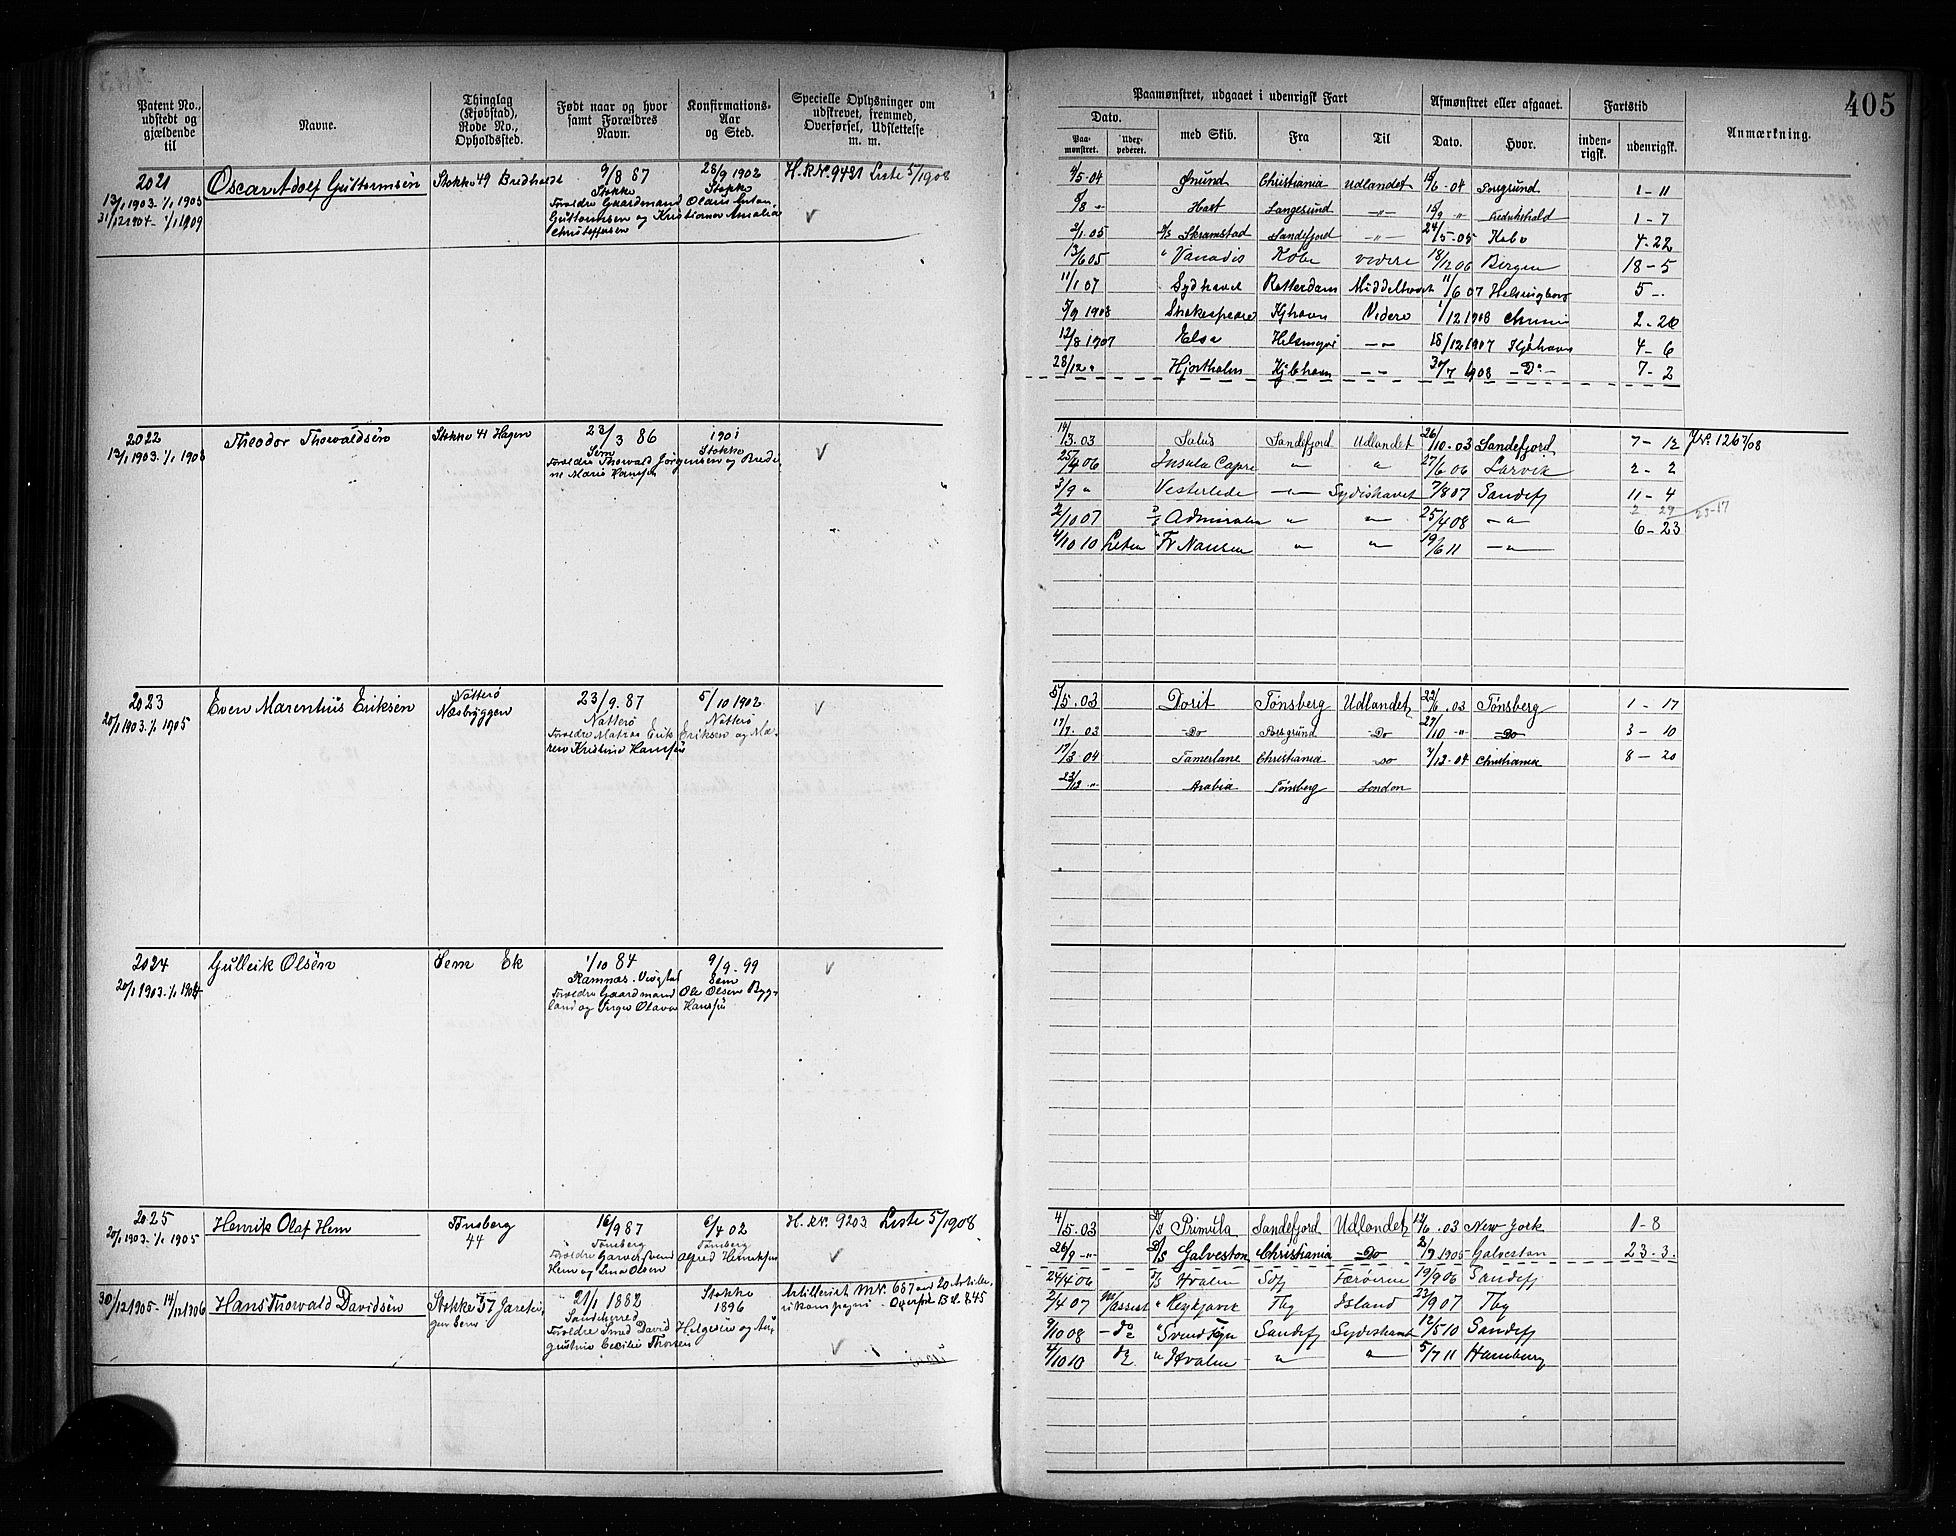 405
Patent No., udstedt og gjældende til
Navne.
Thinglag (Kjøbstad), Rode No., Opholdssted.
Født naar og hvor samt Forældres Navn.
Konfirmations-Aar og Sted.
Specielle Oplysninger om udskrevet, fremmed, Overførsel, Udslettelse m. m.
Paamønstret, udgaaet i udenrigsk Fart
Afmønstret eller afgaaet.
Fartstid
Anmærkning.
Dato.
Paa-mønstret.
Udex-pederet.
med Skib.
Fra
Til
Dato.
Hvor.
inden-rigsk.
udenrigsk.
2021 Oscar Adolf Guttormsen Stokke 49 Bredholt 9/8 87 28/9 1902 H. RN. 9421 Liste 5/1908
13/1 1903 - 1/1 1905 Stokke Stokke
31/12 1904 - 1/1 1909 Forældre Gaardmand Olaus Anton
Guttormsen og Kristiane Amalia
Christoffersen
9/5-04 Ønund Christiania Udlandet 15/6-04 Porsgrund 1-11
5/8 " Hart Langesund -"- 15/9 " Fredrikshald 1-7
2/1.05 D/S Skramstad Sandefjord -"- 24/5-05 Kobe 4-22
13/6 05 " Vanadis Kobe videre 18/12 06 Bergen 18-5
11/1 07 Sydhavet Rotterdam Middelhavet 11/6 07 Helsingborg 5-.
5/9 1908 Shakespeare Kjhavn Videre 1/12 1908 2-26
12/8 1907 Elsa Helsingør -"- 18/12 1907 Kjøhavn 4-6
28/12 " Hjortholm Kjbhavn -"- 30/7 1908 -Do- 7-2
2022 Theodor Thorvaldsen Stokke 41 Hagen 23/3 86 1901
13/1 1903. 1/1 1908 Sem Stokke
Forældre Thorvald Jørgensen og Bredi-
ne Marie Hansen
14/3.03 Salus Sandefjord Udlandet 26/10-03 Sandefjord 7-12
25/4 06 Insula Capri " " 27/6 06 Larvik 2-2
3/9 " Vesterlide -"- Sydishavet 7/8 07 Sandefj 11-4
2/10 07 D/S Admiralen " " 25/4 08 -"- 6-23
4/10 10 " Fr Nansen " " 19/6 11 -"-
2023 Even Marentius Eriksen Nøtterø 23/9.87 5/10 1902
20/1 1903. 1/1 1905 Næsbryggen Nøtterø Nøtterø
Forældre Matros Erik Eriksen og Ma-
ren Kristine Hansen
5/5.03 Dorit Tønsberg Udlandet 22/6.03 Tønsberg 1-17
17/7.03 -Do- Porsgrund -Do- 27/10 -"- -Do- 3-10
17/3-04 Tamerlane Christiania -Do- 7/12-04 Christiania 8-20
23/12 " Arabia Tønsberg London
2024 Gulleik Olsen Sem Ek 1/10 84 9/9-99
20/1 1903. 1/1 1904 Ramnæs. Sem
Forældre Gaardmand Ole Olsen Byg-
land og Inger Olava Hansen
2025 Henrik Olaf Hem Tønsberg 44 16/9 87 6/4 02 H. RN. 9203 Liste 5/1908
20/1 1903. 1/1 1905 Tønsberg Tønsberg
Forældre Garversvend Alfred Henriksen
Hem og Lina Olsen
4/5.03 D/S Primula Sandefjord Udlandet 12/6.03 New York 1-8
26/9 -"- D/S Galveston Christiania -Do- 1905 Galveston 23-3.
30/12 1905 - 14/12 1906 Hans Thorvald Davidsen Stokke 37 21/1 1882 Stokke 1896 Artillerist
Sandeherred
Forældre Smed David Helgesen og Au-
gustine Cecilie Thorsen
24/4 06 D/S Hvalen Sdfj Færøierne 19/9 06 Sandefj
2/4 07 m/assist " Reykjavik Tbg Island 22/9 07 Tbg
9/10 08 -do- " Svend Foyn Sandefj Sydishavet 12/5 10 Sandefj
4/10 10 do " Hvalen " " 5/7 11 Hamburg